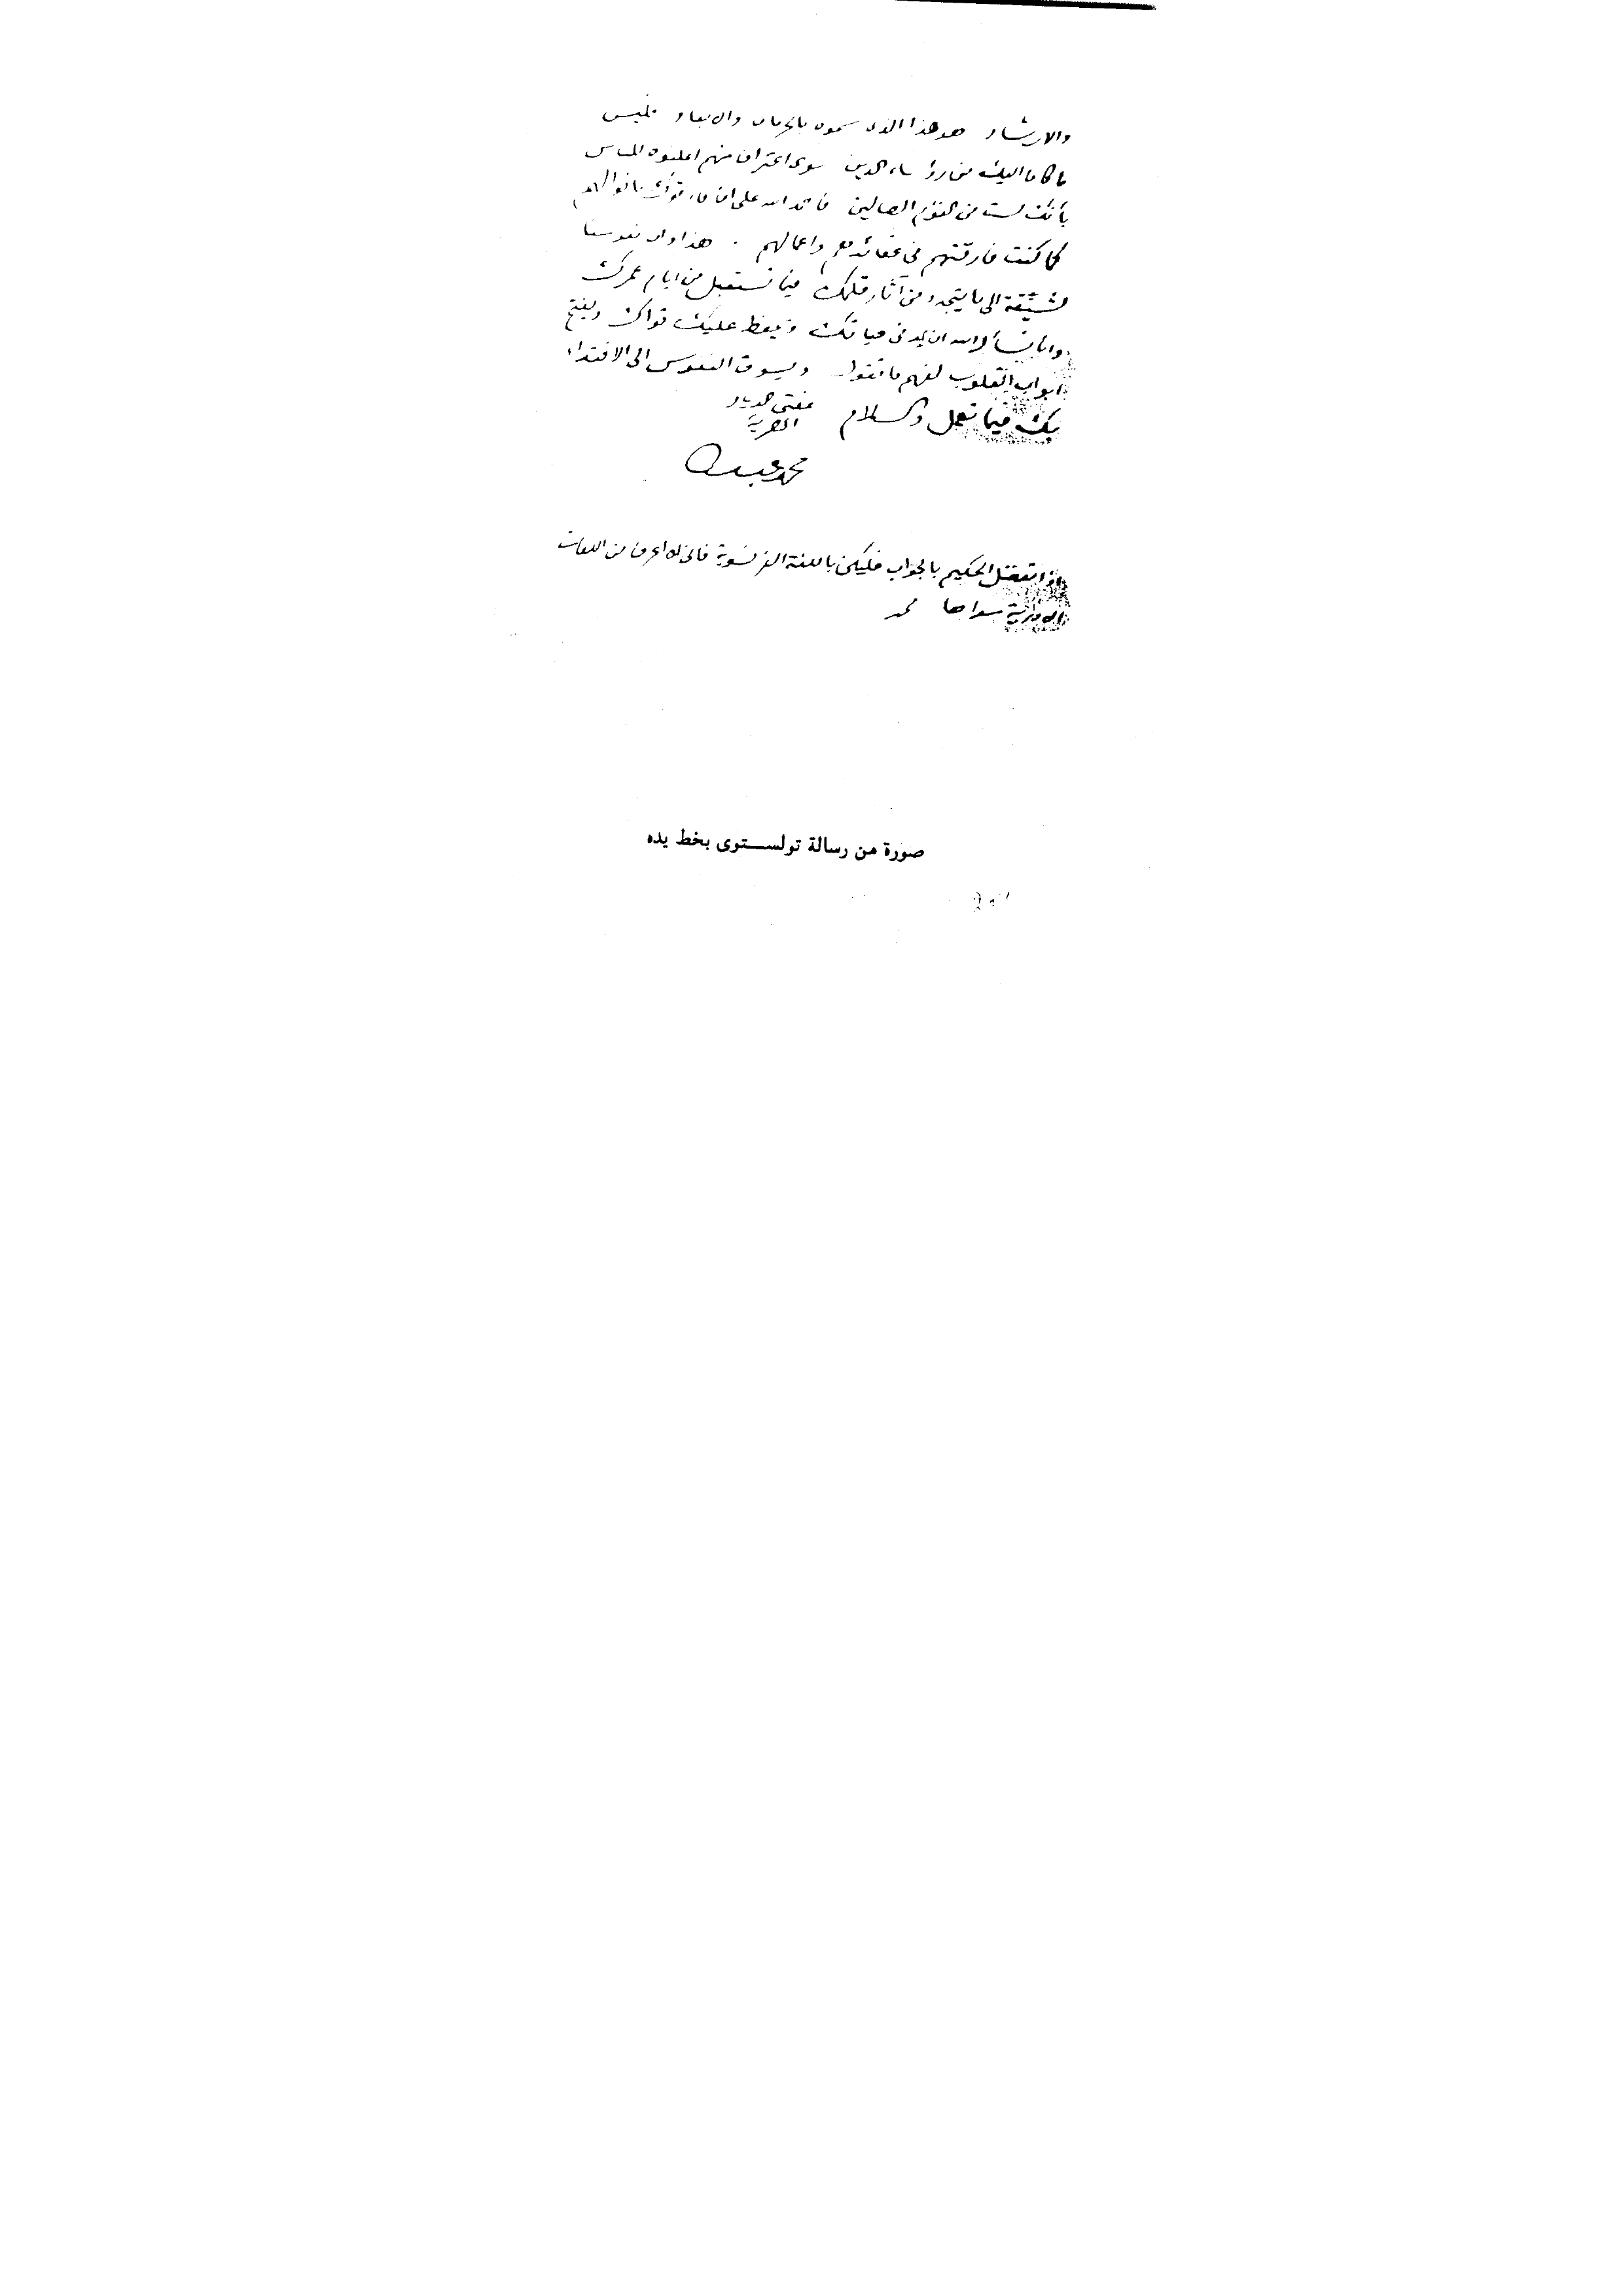 والارشاد هو هذا الذى سموه بالحرمان والابعاد فليس
ما كان اليك من رؤساء الدين سوى اعتراف منهم اعلنوه للناس
بأنك لست من القوم الضالين فاحمد الله على ان فارقوك باقوالهم
كما كنت فارقتهم فى عقائدهم واعمالهم . هذا وان نفوسنا
لشيقة الى ما يتجدد من آثار قلمك فيما تستقبل من ايام عمرك
وانا نسأل الله ان يمد فى حياتك ويحفظ عليك قواك ويفتح
ابواب القلوب لفهم ما تقول ويسوق النفوس الى الاقتداء
بك فيما تعمل والسلام
مفتى الديار
المصرية
محمد عبده
اذا تفضل الحكيم بالجواب فليكن باللغة الفرنسوية فانى لا اعرف من اللغات
الاوربية سواها محمد
صورة من رسالة تولستوى بخط يده